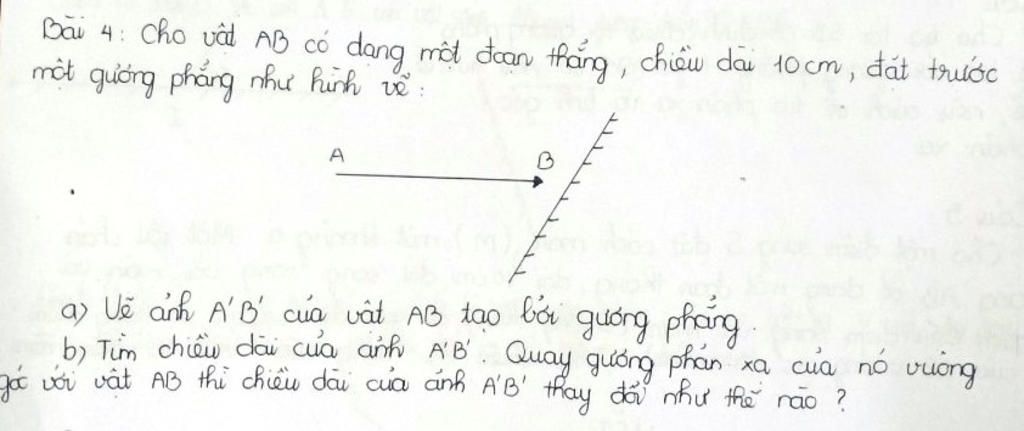 Bài 4: Cho vật AB có dạng một đoạn thẳng, chiều dài 10cm, đặt trước
một gương phẳng như hình vẽ:
A B
a) Vẽ ảnh A'B' của vật AB tạo bởi gương phẳng.
b) Tìm chiều dài của ảnh A'B'. Quay gương phản xạ của nó vuông
gó với vật AB thì chiều dài của ảnh A'B' thay đổi như thế nào?